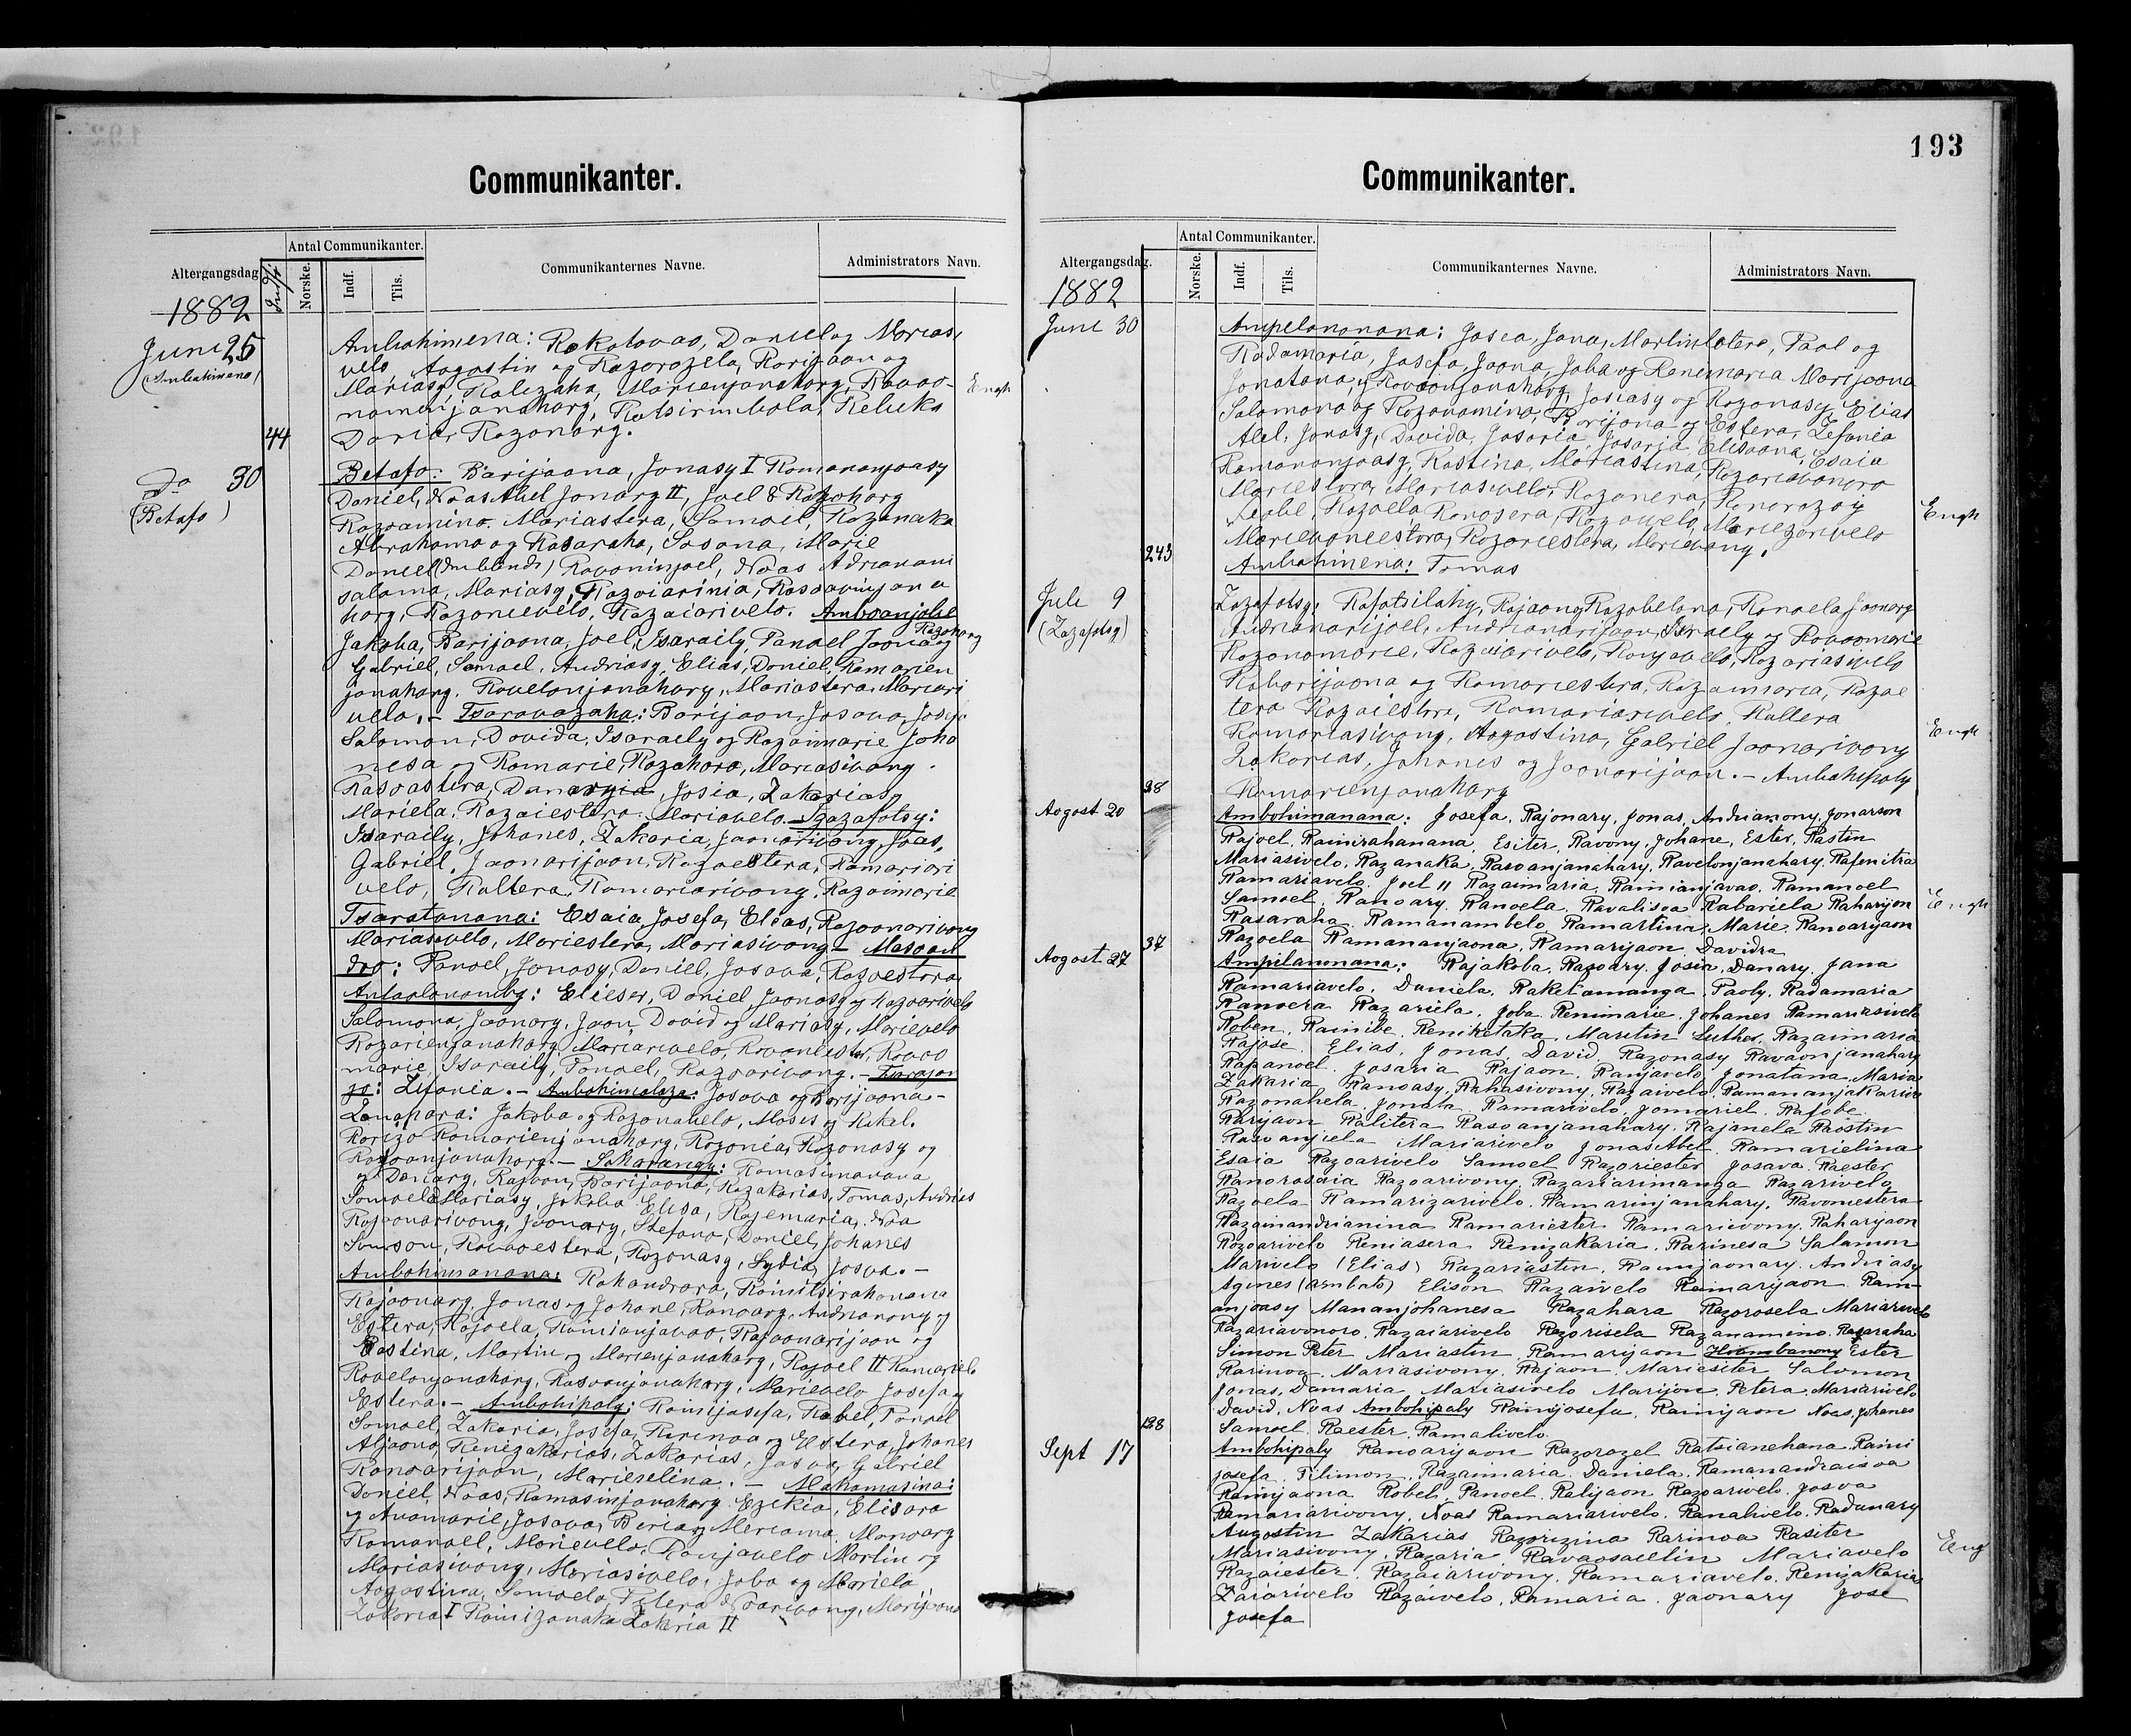 193
Communikanter.
Altergangsdag
Indf.
Norske.
Antal Communikanter.
Indf.
Tils.
Communikanternes Navne.
Administrators Navn.
1882
Juni 25
Ambohimena: Rakotovao, Daniel og Marias,
velo, Aogostin og Razorozela, Rarijaon og
Mariasy, Ralezaha, Marienjanahary, Ravao-
Engh
namenjanahary, Ratsirimbola, Rebeka
44
Daria, Razanary.
do 30
(Betafo)
Betafo: Barijaona, Jonasy I Ramananjoasy
Daniel, Noas Abel Jonary II, Joel & Razohary
Razoamino. Mariastera, Samoil, Razanaka
Abrahama og Rasaraha, Sosana, Marie
Daniel (den blinde) Ravoninjoel, Noas Adrianani
salama, Mariasy, Razoiarinia, Rasoavinjana
hary, Razonievelo, Razaiarivelo. Amboanjobe
Jakoba, Barijaona, Joel, Israely, Panoel Joonaog Razohary
Gabriel, Samoel, Andriasy, Elias, Daniel, Ramarien
janahary. Ravelonjanahary, Mariastera, Mariari
velo. - Tsaravazaha: Barijaon, Josava, Josefa
Salomon, Davida, Israely og Razaimarie Joha
nesa og Ramarie, Razahara, Mariasivony
Rasoastera, Danarya, Josia, Zakariasy
Mariela. Razaiestera. Mariavelo. Zazafotsy:
Israely, Johanes, Zakaria, Jaonarivony, Joas,
Gabriel, Jaonarijaon, Razaestera, Ramariari
velo, Raltera, Ramariarivony, Razaimarie
Tsaratanana: Esaia Josefa, Elias, Razaonarivony
Mariasivelo, Mariestera, Mariasivony - Masoan
dro: Panoel, Jonasy, Daniel, Josava, Razoestera
Antaolanomby: Elieser, Daniel Jaonasy og Razoarivelo
Salomona, Jaonary, Jaon, David og Mariasy, Marievelo
Razarienjanahary, Mariarivelo, Ravaniester, Ravao
marie, Israily, Panoel, Razoarivony. - Farajan
je: Zefania. - Ambohimalaza: Josava og Barijaona -
Lanapara: Jakoba og Razanavelo, Moses og Rakel.
Rarizo Ramarienjanahary, Razonéa, Razonasy og
Rasoanjanahary. - Soharangy: Ramasinavana
og Danary, Rajaon, Barijaona, Razakarias, Tomas, Andrias
Samoela Mariasy, Jakoba Elisa, Rajemaria, Noa
Rajaonarivony, Joonary, Stefano, Daniel, Johanes
Samson, Ravaoestera, Razonasy, Lydia, Josva. -
Ambohimanana: Rahandrara, Rainitsirahonana
Rajaonary, Jonas og Johane, Ranoary, Andrianony og
Estera, Rajoela, Rainianjavao, Rajaonarijaon og
Rastina, Martin og Marienjanahary, Rajoel II Ramarivelo
Ravelonjanahary, Rasoanjanahary, Marievelo Josefa og
Estera. - Ambohipaly: Rainijosefa, Rabel, Panoel
Samoel, Zakaria, Josefa, Rarinoa og Estera, Johanes
Aljaona, Renizakarias, Zakarias, Josva, Gabriel
Ranoarijaon, Marieselina. - Mahamasina:
Daniel, Noas, Ramasinjanahary Ezekia, Elisara
og Anamarie, Josava, Beria og Meriama, Manoary
Ramanoel, Marievelo, Ranjavelo Martin og
Mariasivony, Mariasivelo, Joba og Mariela
Aogostina, Samoela, Petera Noarivony, Marijaona
Zakaria I Rainizanaka Zakaria II
Communikanter.
Altergangsdag.
Norske.
Antal Communikanter.
Indf.
Tils.
Communikanternes Navne.
Administrators Navn.
1882
Juni 30
Ampelanonana: Josea, Jana, Martin Lotera, Paol og
Radamaria, Josefa, Joona, Joba og Renimaria Marijoona
Jonatana, og Ravaonjanahary, Josiasy og Razonasy, Elias
Salomona og Razanamino, Barijona og Estera, Zefania
Abel, Jonasy, Davida, Josaria, Josaria Elisaona, Esaia
Ramananjoasy, Rastina, Mariastina, Razariavonoro
Mariestora, Mariasivelo, Razanera, Ranorozoy
Leable, Razaela, Ranosera, Razaivelo, Mariezarivelo
Engh
Marievoneestora, Razariestera, Marievony.
243
Ambohimena: Tomas
Juli 9
(Zazafotsy)
Zazafotsy: Rafotsilahy, Rajaona Razabelona, Ranoela Joonary
Andrianarijoel, Andrianarijaon, Israely og Ravaomarie
Razanamarie, Razaiarivelo, Ranjavelo, Razariasivelo
Rabarijaona og Ramariestera, Razamaria, Razae
tera Razaiestera, Ramariasivelo, Raltera
Ramariasivony, Aogostino, Gabriel Jaonarivony
Engh
Zakarias, Johanes og Jaonarijaon. - Ambohipaly
98
Ramarienjanahary
Aogost 20
Ambohimanana: Josefa, Rajonary, Jonas, Andriamony, Jonarson
Rajoel, Rainirahanana, Esiter, Ravony, Johane, Ester, Rastin
Mariasivelo, Razanaka, Rasoanjanahary, Ravelonjanahary, Rafenitra
Ramariavelo. Joel II Razaimaria, Rainianjavao, Ramanoel
Samoel, Ranoary, Ranoela, Ravalisoa Rabariela Raharijon
Engh
Rasaraha Ramanambelo Ramartina, Marie, Ranoarijaon
37
Razoela Ramananjaona, Ramarijaon Davidra
Aogost 27
Ampilanonana: Rajakoba, Razoary, Josia, Danary, Jana
Ramariavelo, Daniela, Raketamanga, Paoly, Radamaria
Ranoera Razariela, Joba Renimarie, Johanes Ramariasivelo
Roben, Rainibe, Reniketaka, Martin Luther, Razaimaria
Rajose, Elias, Jonas, David, Razonasy Ravaonjanahary
Rapanoel, Josaria Rajaon, Ranjavelo, Jonatana, Maria
Zakaria Ranoasy, Rahasivony, Razaivelo, Ramananjakarivo
Razonahela Jonata Ramarivelo, Jomariel, Rafobe
Rarijaon Ralitera Rasoanjanahary, Rajanela Raostin
Rasoanjiela Mariarivelo Jonas Abel Ramarielina
Esaia Razoarivelo Samoel Razoriester Josava, Raester
Ranorasoaia Razoarivony, Razariarimanga Razarivelo
Razoela Ramarizarivelo, Ramarinjanahary, Ravoniestera
Razainandrianina Ramariester Ramarievony, Raharijaon
Razoarivelo Reniasera Renizakaria, Rarinesa Salamon
Marivelo (Elias) Razariastin, Raunjaonary, Andriasy
Agines (Ambato) Elison Razaivelo Ramarijaon Ram-
anjoasy Mananjohanesa Razahara Razorosela Mariarivelo
Razariavonoro, Razaiarivelo Razorisela Razanamino, Rasaraha
Simon Peter Mariastin Ramarijaon Hoansbanony Ester
Rarinoa, Mariasivony, Rajaon, Mariesiter Salomon
Jonas, Damaria Mariasivelo Marijon, Petera, Mariarivelo
David, Noas Ambohipaly Rainijosefa, Rainijaon Noas, Johanes
138
Samoel, Raester, Ramalivelo
Sept 17
Ambohipaly Ranoarijaon Razorozel Ratsianehana Raini
josefa, Filimon, Razaimaria, Daniela, Ramanandraisoa
Rainijaona Robel Panoel Ralijaon Razoarivelo, Josva
Ramariarivony, Noas Ramariarivelo, Ranalivelo, Radanary
Augostin Zakarias Razorizina Rarinoa Rasiter
Eng
Mariasivony, Razaria Ravaosaelin Mariavelo
Razaiester, Razaiarivony, Ramariavelo, Renizakaria
Zaiarivelo Razaivelo, Ramaria, Jaonary Jose
Josefa